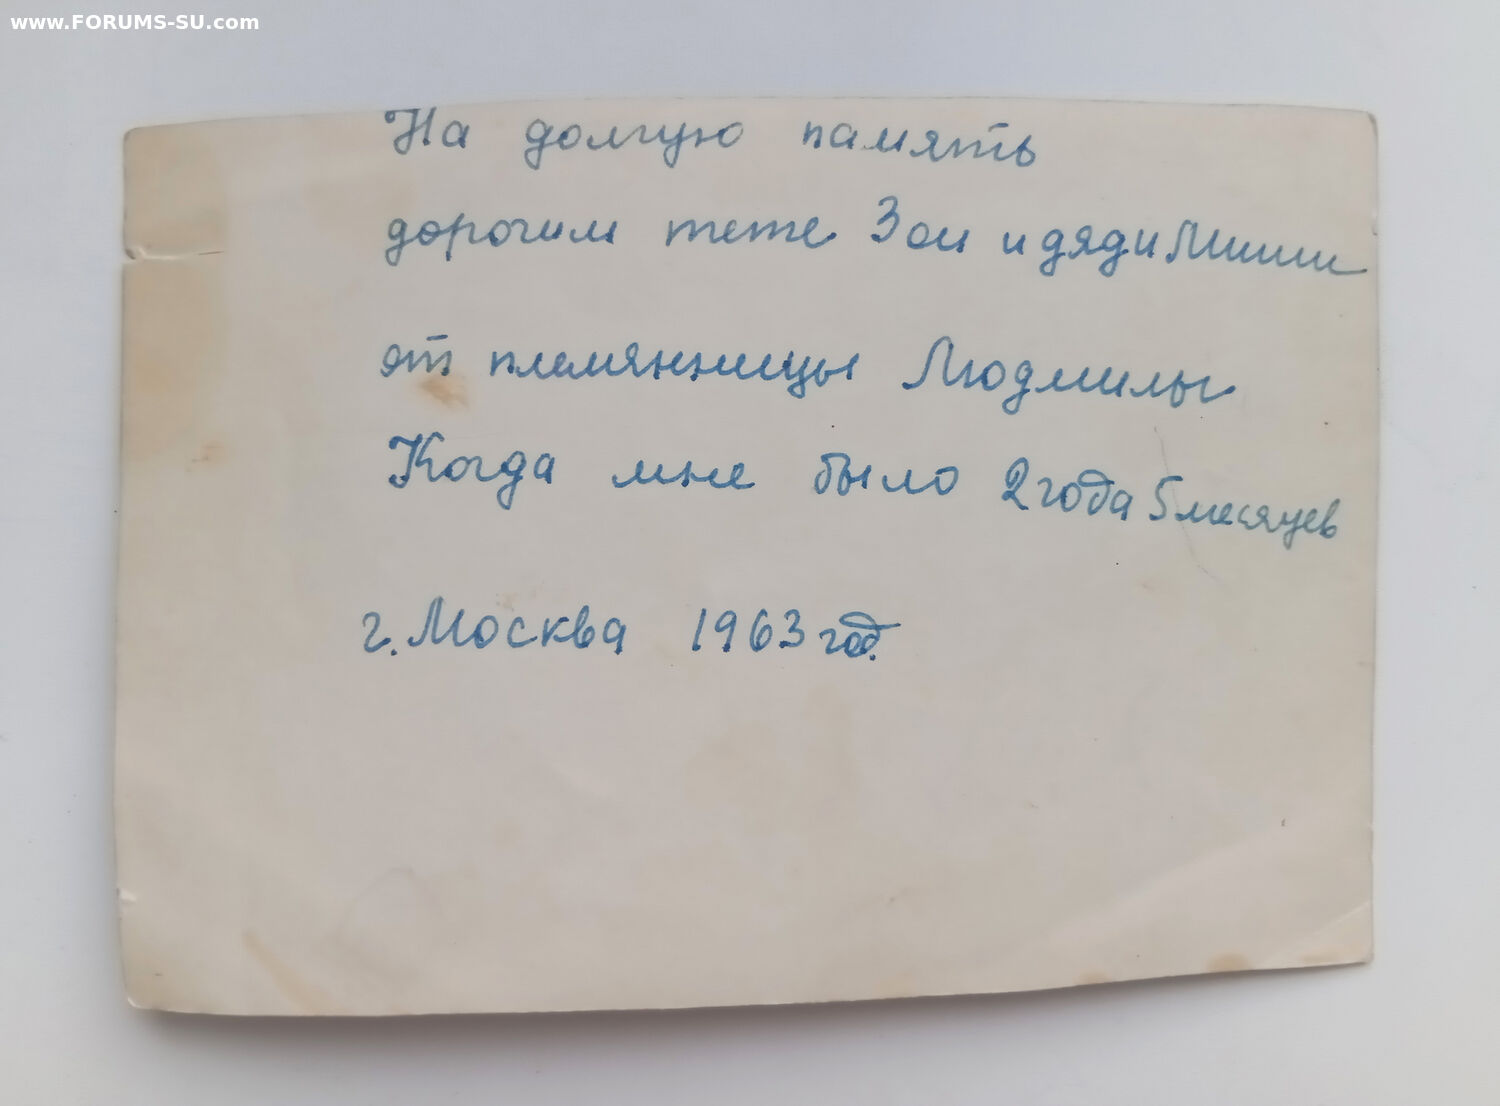 www.FORUMS-SU.com
На долгую память
дорогим тете Зои и дяди Миши
от племянницы Людмилы
Когда мне было 2 года 5 месяцев
г. Москва 1963 год.